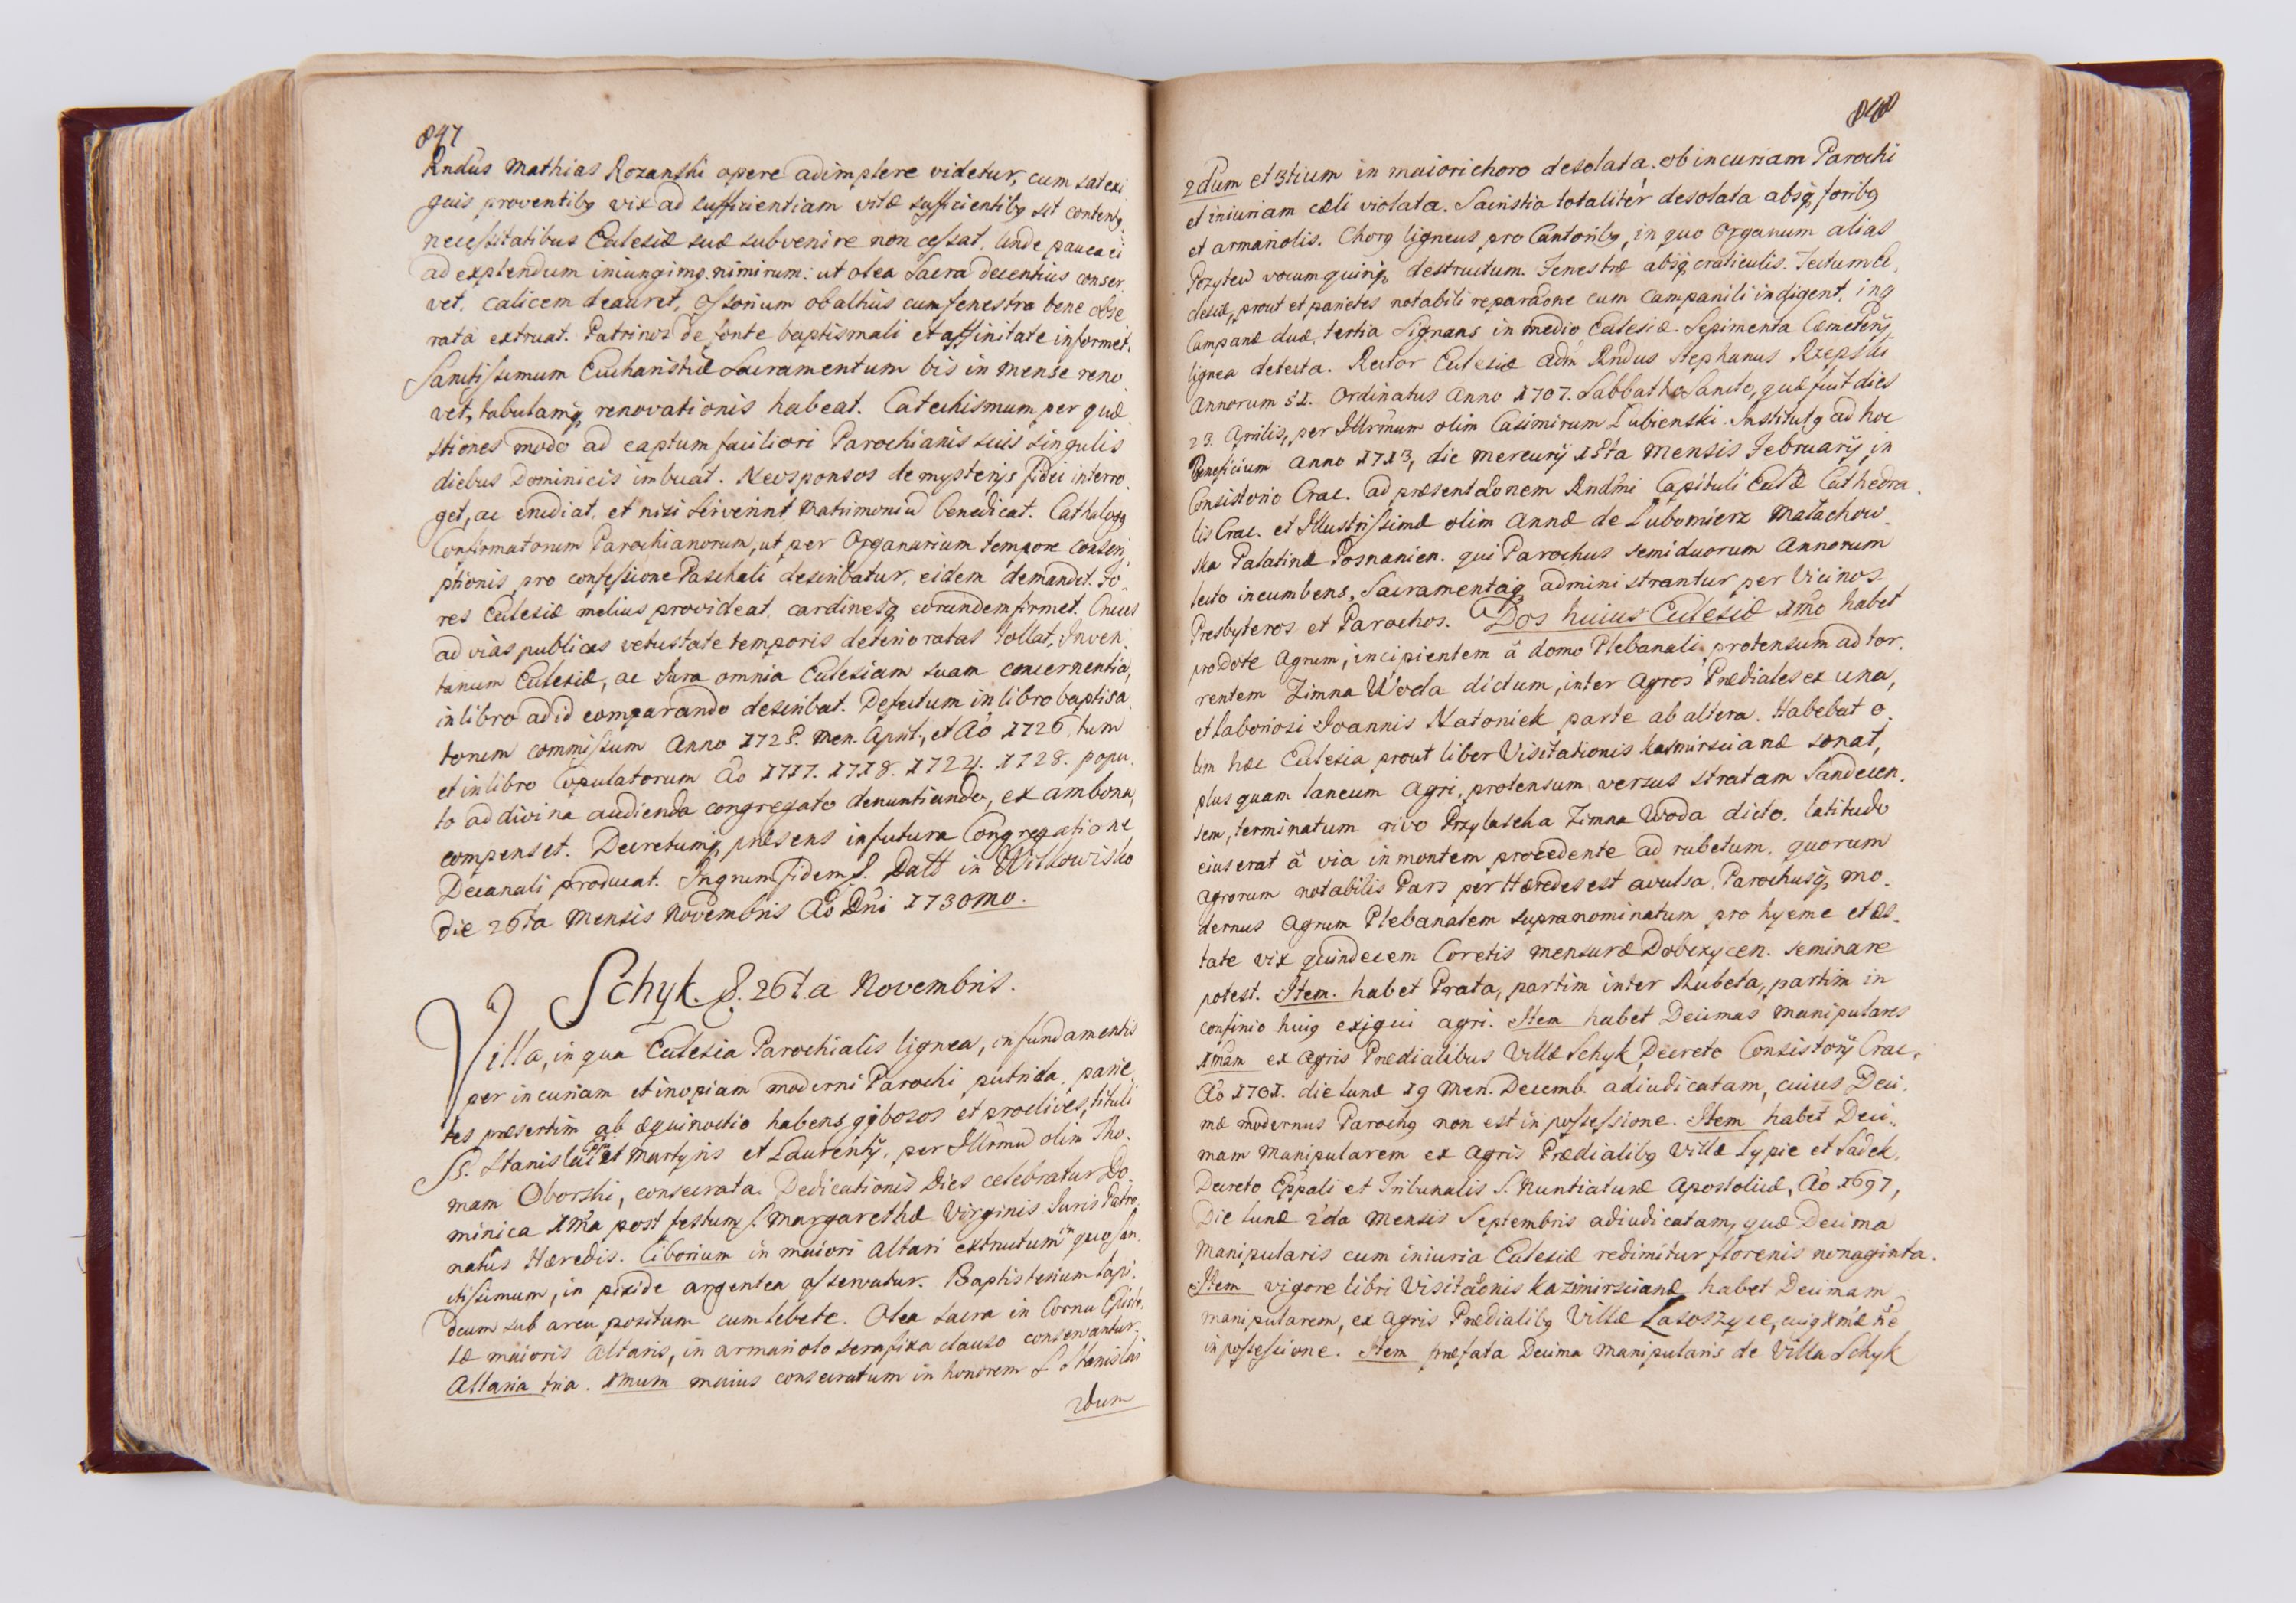 847
Rndûs Mathias Rozanski opere adimplere videtur, cum sat exi
guis proventibꝯ vix ad sufficientiam vitæ sufficientibꝯ sit contentꝯ
necessitatibus Ecclesiæ suæ subvenire non cessat. Unde pauca ei
ad explendum iniungimꝯ. nimirum: ut olea Sacra decentius conser
vet. Calicem deauret, Ossorium ob altius cum fenestra bene obse
rata extruat. Patrinos de fonte baptismali et affinitate informet.
Sanctissimum Eucharistiæ Sacramentum bis in Mense reno
vet, tabulamqꝫ renovationis habeat. Catechismum per quæ
stiones modo ad captum faciliori Parochianis suis singulis
diebus Dominicis imbuat. Neosponsos de mysterijs fidei interro
get, ac erudiat, et nisi sciverint Matrimoniū benedicat. Cathalogꝯ
Confirmatorum Parochianorum, ut per Organarium tempore conscri
ptionis pro confessione Paschali describatur, eidem demandet. Fo
res Ecclesiæ melius provideat, cardinesqꝫ eorundem firmet. Cruces
ad vias publicas vetustate temporis deterioratas tollat, Inven
tarium Ecclesiæ, ac Iura omnia Ecclesiam suam concernentia,
in libro ad id comparando describat. Defectum in libro baptisa
torum commissum Anno 1725. Men. April., et Aô 1726. tum
et in libro Copulatorum aô 1717. 1718. 1724. 1728. popu
lo ad divina audienda congregato denuntiando, ex ambona,
compenset. Decretumqꝫ præsens in futura Congregatione
Decanali producat. In qrum fidem &. Datt in Wilkowisko
Die 26ta Mensis Novembris Aô Dñi 1730mo.
Schyk. D. 26ta Novembris.
Villa, in qua Ecclesia Parochialis lignea, in fundamentis
per incuriam et inopiam moderni Parochi putrida, parie
tes præsertim ab æquinoctio habens gibosos et proclives, tituli
SS. Stanislai Epi et Martyris et Laurentij, per Illrmū olim Tho
mam Oborski, consecrata. Dedicationis Dies celebratur Do
minica 1ma post festum S. Margarethæ Virginis. Iuris Patro
natûs Hæredis. Ciborium in maiori Altari extructum in quo San
ctissimum, in pixide argentea asservatur. Baptisterium lapi
deum sub arcu positum cum lebete. Olea Sacra in Cornu Episto
læ maioris Altaris, in armariolo sera fixa clauso conservantur.
Altaria tria. 1mum maius consecratum in honorem S Stanislai
2dum
848
2dum et 3tium in maiori choro desolata. ob incuriam Parochi
et iniuriam cæli violata. Sacristia totalitèr desolata absqꝫ foribꝯ
et armariolis. Chorꝯ ligneus pro Cantoribꝯ, in quo Organum alias
Pozytew vocum quinqꝫ destructum. Fenestræ absqꝫ craticulis. Tectum Ec
clesiæ, prout et parietes notabili reparaõne cum Campanili indigent, in q
Campanæ duæ, tertia Signans in medio Ecclesiæ. Sepimenta Cæmeterij
lignea detecta. Rector Ecclesiæ Adm Rndus Stephanus Rzepski
Annorum 51. Ordinatus Anno 1707. Sabbatho Sancto, quæ fuit dies
23. Aprilis, per Illrmum olim Casimirum Łubienski. Institutꝯ ad hoc
Beneficium Anno 1713, die Mercurij 15ta Mensis Februarij in
Consistorio Crac. ad præsentaõnem Rndmi Capituli Eclæ Cathedra
lis Crac. et Illustrissimæ olim Annæ de Lubomierz Małachow
ska Palatinæ Posnanien. qui Parochus semiduorum Annorum
lecto incumbens, Sacramentaqꝫ administrantur per Vicinos
Presbyteros et Parochos. Dos huius Ecclesiæ 1mo habet
pro Dote Agrum, incipientem â domo Plebanali protensum ad tor
rentem Zimna Woda dictum, inter Agros Prædiales ex una,
et laboriosi Ioannis Natoniek parte ab altera. Habebat o
lim hæc Ecclesia prout liber Visitationis Kasmirscianæ sonat,
plus quam laneum Agri, protensum versus stratam Sandecen
sem, terminatum rivo Przylaseka Zimna Woda dicto, latitudo
eius erat â via in montem procedente ad rubetum. quorum
Agrorum notabilis Pars per Hæredes est avulsa, Parochusqꝫ mo
dernus Agrum Plebanalem supranominatum pro hyeme et æs
tate vix quindecem Coretis mensuræ Dobczycen. seminare
potest. Item. habet Prata, partim inter Rubeta, partim in
confinio huiꝯ exigui agri. Item habet Decimas Manipulares
1mam ex Agris Prædialibus Villæ Schyk, Decreto Consistorij Crac.
Aô 1701. die Lunæ 19 Men. Decemb. adiudicatam, cuius Deci
mæ modernus Parochꝯ non est in possessione. Item habet Deci
mam Manipularem ex Agris Prædialibꝯ Villæ Lypie et Sadek,
Decreto Eppali et Tribunalis S. Nuntiaturæ Apostolicæ, Aô 1697,
Die Lunæ 2da Mensis Septembris adiudicatam, quæ Decima
Manipularis cum iniuria Ecclesiæ redimitur florenis nonaginta.
Item vigore libri Visitaõnis Kazimirscianæ habet Decimam
manipularem, ex Agris Prædialibꝯ Villæ Łasoszyce, cuiꝯ Xmæ ñ e
in possessione. Item præfata Decima Manipularis de Villa Schyk